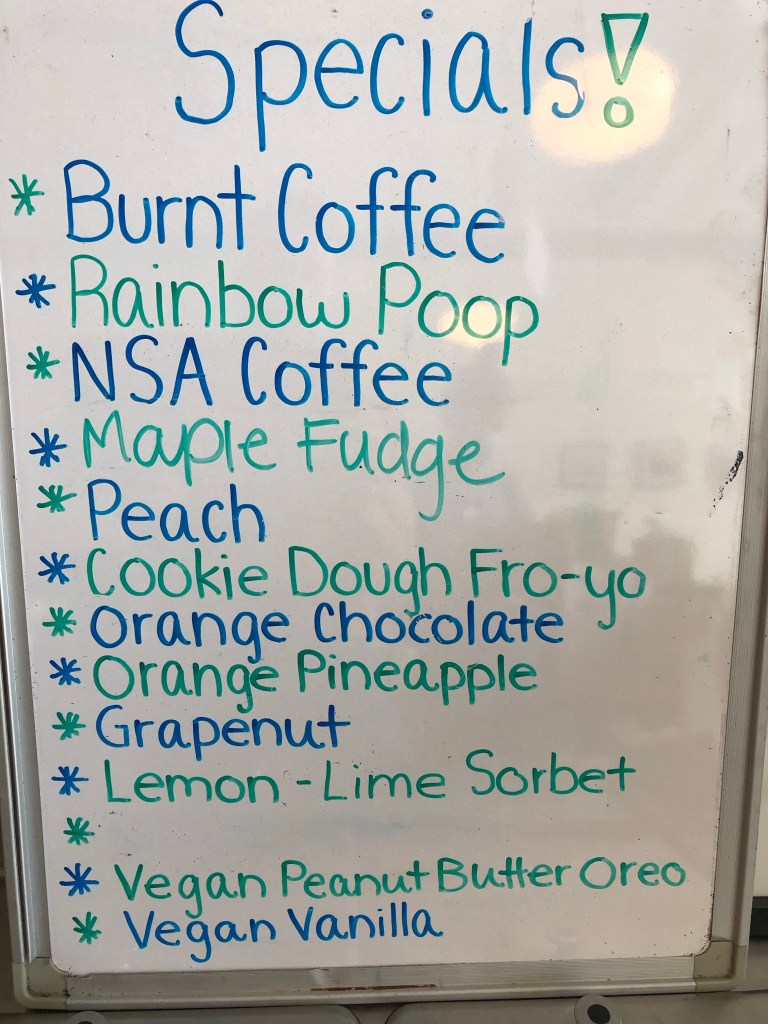 Specials!
* Burnt Coffee
* Rainbow Poop
* NSA Coffee
* Maple Fudge
* Peach
* Cookie Dough Fro-yo
* Orange Chocolate
* Orange Pineapple
* Grapenut
* Lemon-Lime Sorbet
*
* Vegan Peanut Butter Oreo
* Vegan Vanilla